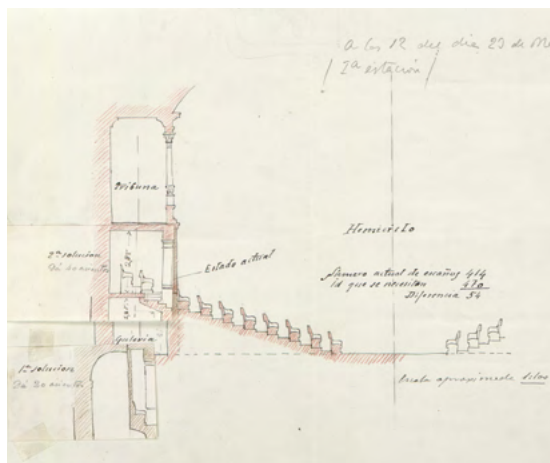 a las 12 del dia 23 de
(2ª estación)
Tribuna
Hemiciclo
2ª solucion
Dá 20 asientos
Estado actual
Número actual de escaños 414
Id que se necesitan 470
Diferencia 54
Galería
1ª solucion
Dá 20 asientos
Escala aproximada